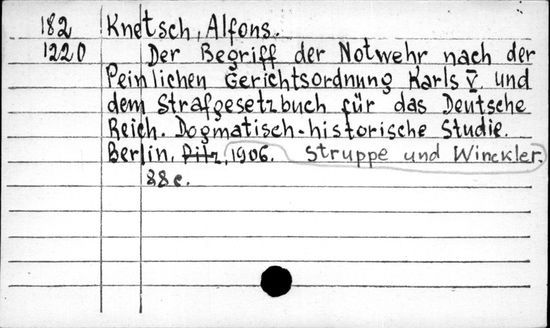 182 Knetsch, Alfons.
1220 Der Begriff der Notwehr nach der
Peinlichen Gerichtsordnung Karls V. und
dem Strafgesetzbuch für das Deutsche
Reich. Dogmatisch-historische Studie.
Berlin, Pilz, 1906. Struppe und Winckler.
88c.